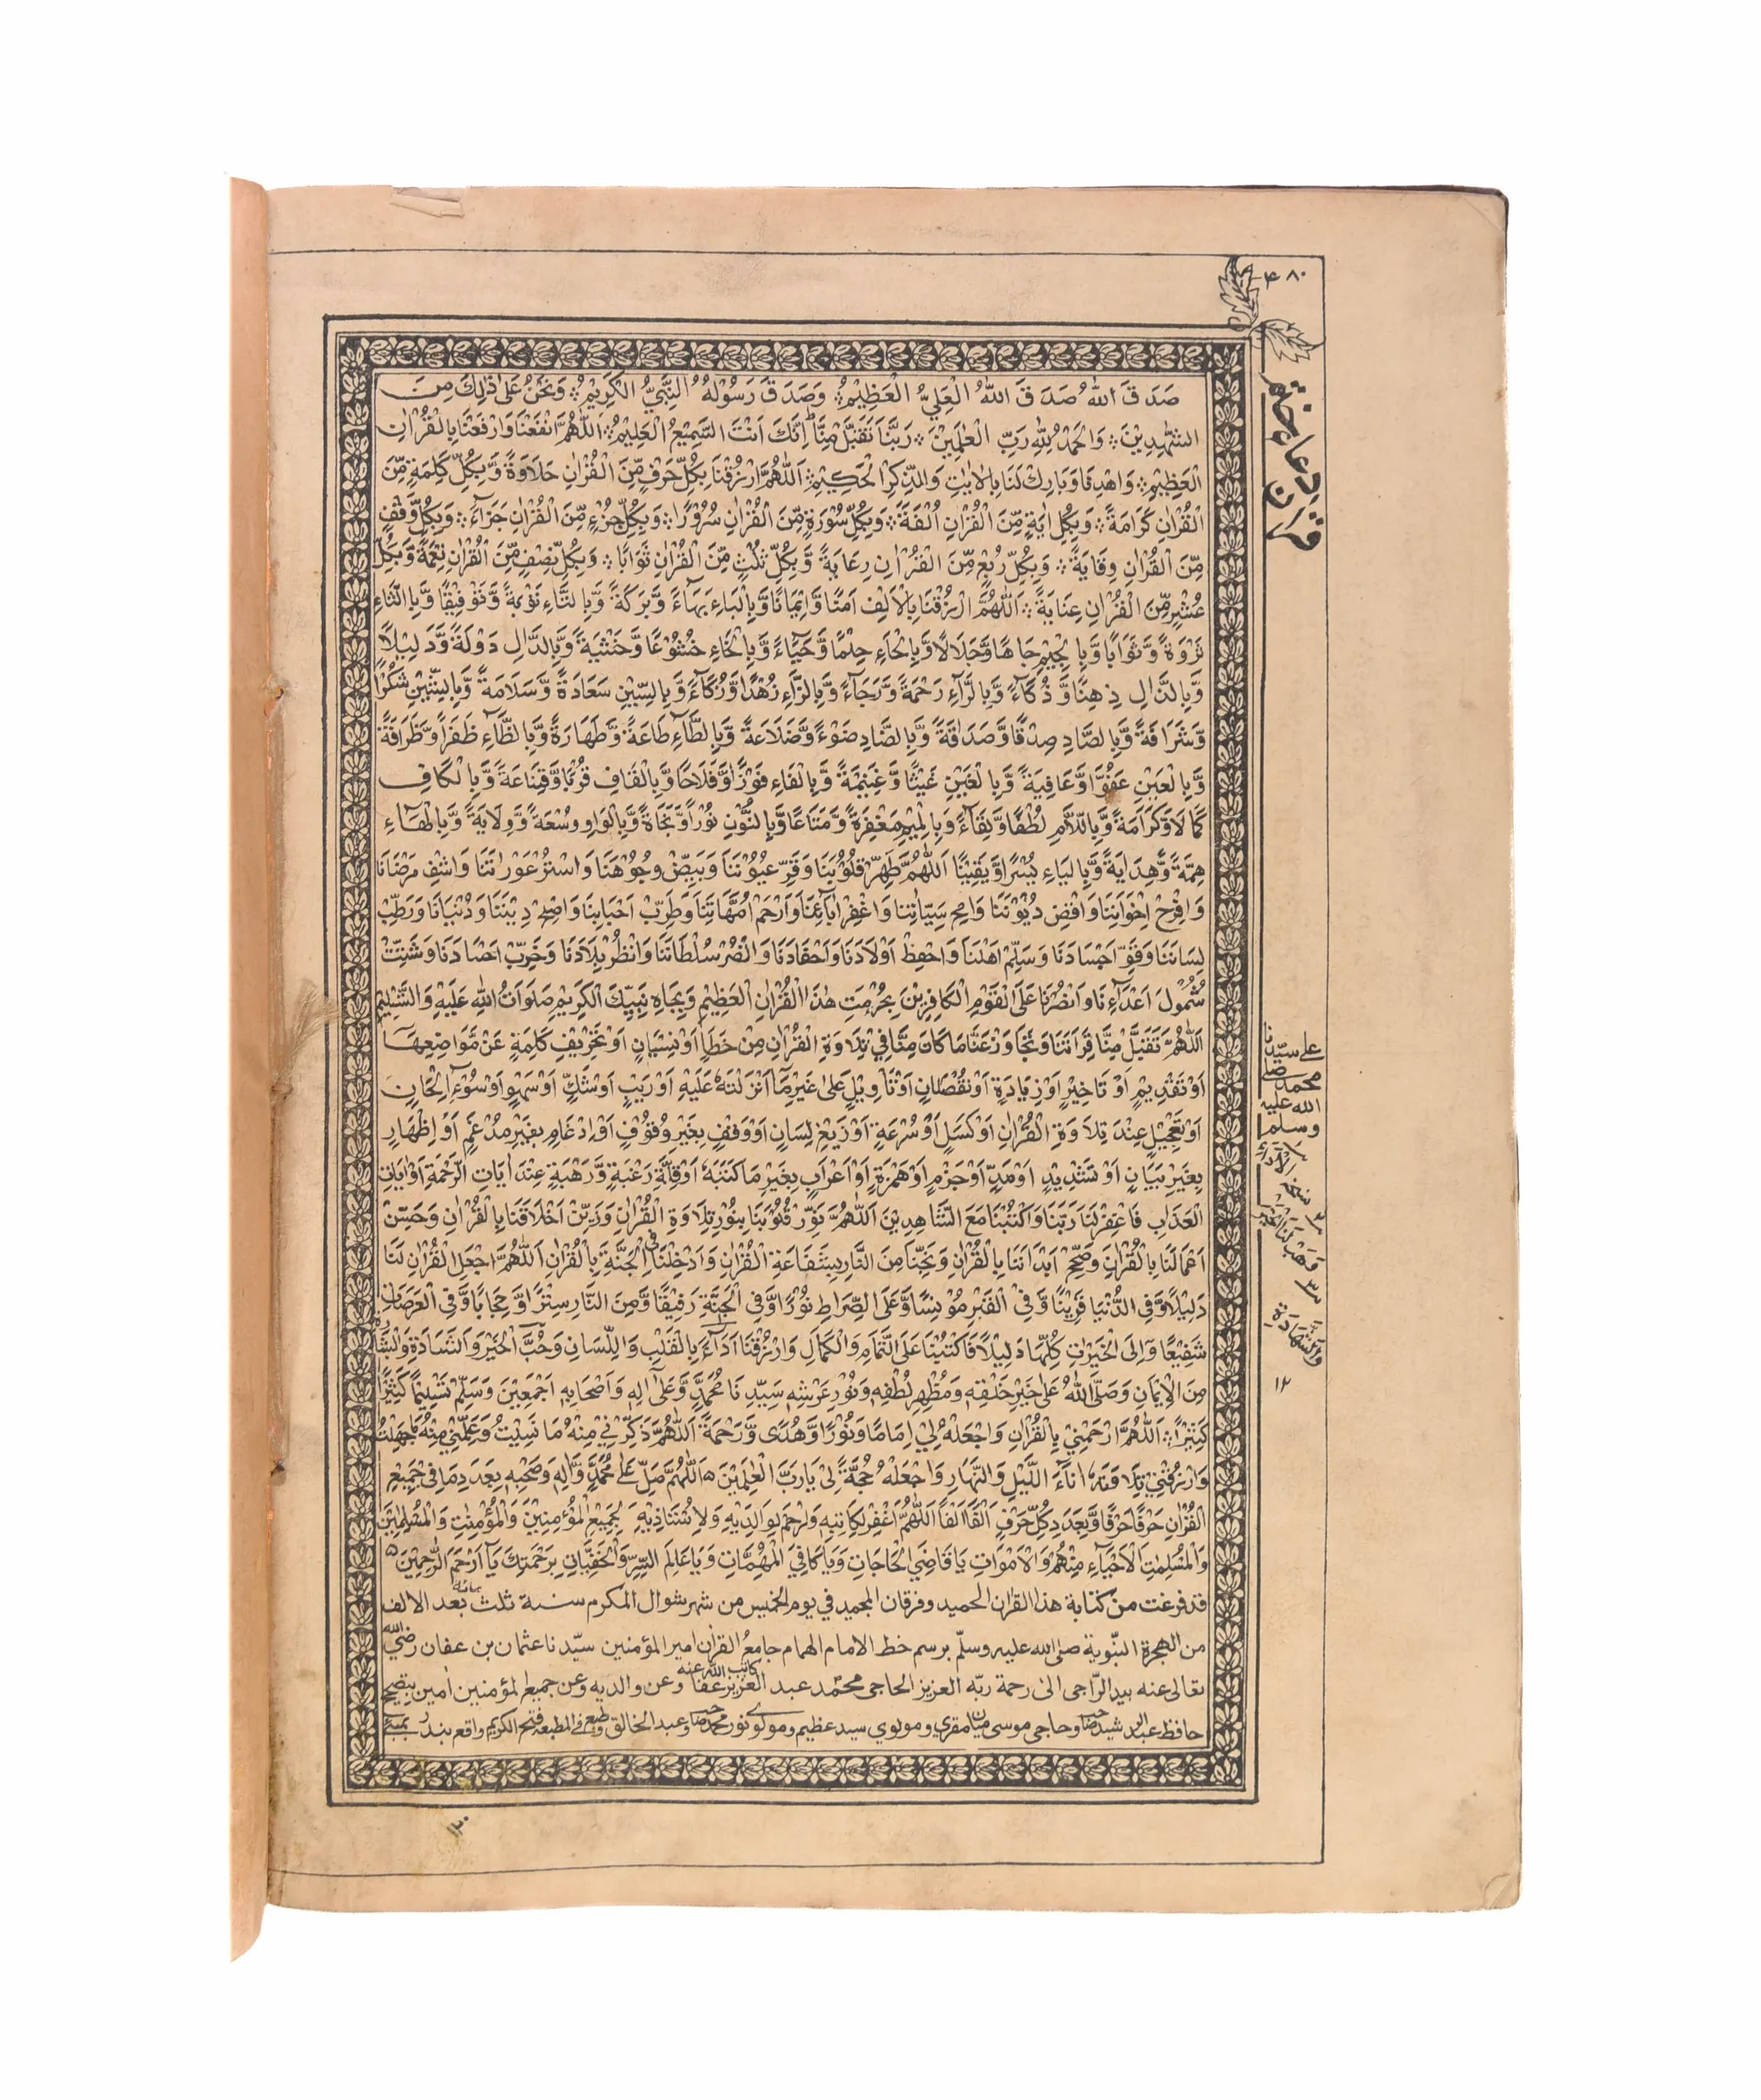 ۴۸۰
صَدَقَ اللهُ صَدَقَ اللهُ الْعَلِيُّ الْعَظِيْمُ وَصَدَقَ رَسُوْلُهُ النَّبِيُّ الْكَرِيْمُ وَنَحْنُ عَلٰى ذٰلِكَ مِنَ
الشّٰهِدِيْنَ وَالْحَمْدُ لِلّٰهِ رَبِّ الْعٰلَمِيْنَ رَبَّنَا تَقَبَّلْ مِنَّا اِنَّكَ اَنْتَ السَّمِيْعُ الْعَلِيْمُ اَللّٰهُمَّ انْفَعْنَا وَارْفَعْنَا بِالْقُرْاٰنِ
الْعَظِيْمِ وَاهْدِنَا وَبَارِكْ لَنَا بِالْاٰيٰتِ وَالذِّكْرِ الْحَكِيْمِ اَللّٰهُمَّ ارْزُقْنَا بِكُلِّ حَرْفٍ مِّنَ الْقُرْاٰنِ حَلَاوَةً وَّبِكُلِّ كَلِمَةٍ مِّنَ
الْقُرْاٰنِ كَرَامَةً وَبِكُلِّ اٰيَةٍ مِّنَ الْقُرْاٰنِ اُلْفَةً وَبِكُلِّ سُوْرَةٍ مِّنَ الْقُرْاٰنِ سُرُوْرًا وَبِكُلِّ جُزْءٍ مِّنَ الْقُرْاٰنِ جَزَاءً وَبِكُلِّ وَقْفٍ
مِّنَ الْقُرْاٰنِ وِقَايَةً وَبِكُلِّ رُبْعٍ مِّنَ الْقُرْاٰنِ رِعَايَةً وَّبِكُلِّ ثُلُثٍ مِّنَ الْقُرْاٰنِ ثَوَابًا وَبِكُلِّ نِصْفٍ مِّنَ الْقُرْاٰنِ نِعْمَةً وَّبِكُلِّ
عُشْرٍ مِّنَ الْقُرْاٰنِ عِنَايَةً اَللّٰهُمَّ ارْزُقْنَا بِالْاَلِفِ اَمْنًا وَّاِيْمَانًا وَّبِالْبَاءِ بَهَاءً وَّبَرَكَةً وَّبِالتَّاءِ تَوْبَةً وَّتَوْفِيْقًا وَّبِالثَّاءِ
ثَرْوَةً وَّثَوَابًا وَّبِالْجِيْمِ جَاهًا وَّجَلَالًا وَّبِالْحَاءِ حِلْمًا وَّحَيَاءً وَّبِالْخَاءِ خُشُوْعًا وَّخَشْيَةً وَّبِالدَّالِ دَوْلَةً وَّدَلِيْلًا
وَّبِالذَّالِ ذِهْنًا وَّذُكَاءً وَّبِالرَّاءِ رَحْمَةً وَّرَجَاءً وَّبِالزَّاءِ زُهْدًا وَّزُكَاءً وَّبِالسِّيْنِ سَعَادَةً وَّسَلَامَةً وَّبِالشِّيْنِ شُكْرًا
وَّشَرَافَةً وَّبِالصَّادِ صِدْقًا وَّصَدَاقَةً وَّبِالضَّادِ ضَوْءً وَّضَلَاعَةً وَّبِالطَّاءِ طَاعَةً وَّطَهَارَةً وَّبِالظَّاءِ ظَفَرًا وَّظَرَافَةً
وَّبِالْعَيْنِ عَفْوًا وَّعَافِيَةً وَّبِالْغَيْنِ غَيْثًا وَّغَنِيْمَةً وَّبِالْفَاءِ فَوْزًا وَّفَلَاحًا وَّبِالْقَافِ قُرْبًا وَّقَنَاعَةً وَّبِالْكَافِ
كَمَالًا وَّكَرَامَةً وَّبِاللَّامِ لُطْفًا وَّلِقَاءً وَبِالْمِيْمِ مَغْفِرَةً وَّمَتَاعًا وَّبِالنُّوْنِ نُوْرًا وَّنَجَاةً وَّبِالْوَاوِ وُسْعَةً وَّوِلَايَةً وَّبِالْهَاءِ
هِمَّةً وَّهِدَايَةً وَّبِالْيَاءِ يُسْرًا وَّيَقِيْنًا اَللّٰهُمَّ طَهِّرْ قُلُوْبَنَا وَقَرِّ عُيُوْنَنَا وَبَيِّضْ وُجُوْهَنَا وَاسْتُرْ عَوْرٰتَنَا وَاشْفِ مَرْضَانَا
وَافْرَحْ اِخْوَانَنَا وَاقْضِ دُيُوْنَنَا وَامْحُ سَيِّاٰتِنَا وَاغْفِرْ اٰبَاءَنَا وَارْحَمْ اُمَّهَاتِنَا وَطَرِّبْ اَحْبَابَنَا وَاصْلِحْ دِيْنَنَا وَدُنْيَانَا وَرَطِّبْ
لِسَانَنَا وَقَوِّ اَجْسَادَنَا وَسَلِّمْ اَهْلَنَا وَاحْفِظْ اَوْلَادَنَا وَاَحْفَادَنَا وَانْصُرْ سُلْطَانَنَا وَانْظُرْ بِلَادَنَا وَخَرِّبْ اَضْدَادَنَا وَشَتِّتْ
شُمُوْلَ اَعْدَاءِنَا وَانْصُرْنَا عَلَى الْقَوْمِ الْكَافِرِيْنَ بِحُرْمَتِ هٰذَا الْقُرْاٰنِ الْعَظِيْمِ وَبِجَاهِ نَبِيِّكَ الْكَرِيْمِ صَلَوَاتُ اللهِ عَلَيْهِ وَالتَّسْلِيْمِ
اَللّٰهُمَّ تَقَبَّلْ مِنَّا قِرَاَتَنَا وَتَجَاوَزْ عَنَّا مَا كَانَ مِنَّا فِيْ تِلَاوَةِ الْقُرْاٰنِ مِنْ خَطَاٍ اَوْ نِسْيَانٍ اَوْ تَحْرِيْفِ كَلِمَةٍ عَنْ مَّوَاضِعِهَا
اَوْ تَقْدِيْمٍ اَوْ تَاخِيْرٍ اَوْ زِيَادَةٍ اَوْ نُقْصَانٍ اَوْ تَاْوِيْلٍ عَلٰى غَيْرِ مَا اَنْزَلْتَهُ عَلَيْهِ اَوْ رَيْبٍ اَوْ شَكٍّ اَوْ سَهْوٍ اَوْ سُوْءِ اِلْحَانٍ
اَوْ تَعْجِيْلٍ عِنْدَ تِلَاوَةِ الْقُرْاٰنِ اَوْ كَسَلٍ اَوْ سُرْعَةٍ اَوْ زَيْغِ لِسَانٍ اَوْ وَقْفٍ بِغَيْرِ وُقُوْفٍ اَوْ اِدْغَامٍ بِغَيْرِ مُدْغَمٍ اَوْ اِظْهَارٍ
بِغَيْرِ بَيَانٍ اَوْ تَشْدِيْدٍ اَوْ مَدٍّ اَوْ جَزْمٍ اَوْ هَمْزَةٍ اَوْ اِعْرَابٍ بِغَيْرِ مَا كَتَبَهُ اَوْ قِلَّةِ رَغْبَةٍ وَّرَهْبَةٍ عِنْدَ اٰيَاتِ الرَّحْمَةِ اَوْ اٰيَاتِ
الْعَذَابِ فَاغْفِرْ لَنَا رَبَّنَا وَاكْتُبْنَا مَعَ الشَّاهِدِيْنَ اَللّٰهُمَّ نَوِّرْ قُلُوْبَنَا بِنُوْرِ تِلَاوَةِ الْقُرْاٰنِ وَزَيِّنْ اَخْلَاقَنَا بِالْقُرْاٰنِ وَحَسِّنْ
اَعْمَالَنَا بِالْقُرْاٰنِ وَصَحِّحْ اَبْدَانَنَا بِالْقُرْاٰنِ وَنَجِّنَا مِنَ النَّارِ بِشَفَاعَةِ الْقُرْاٰنِ وَاَدْخِلْنَا فِي الْجَنَّةِ بِالْقُرْاٰنِ اَللّٰهُمَّ اجْعَلِ الْقُرْاٰنَ لَنَا
دَلِيْلًا وَّفِي الدُّنْيَا قَرِيْنًا وَّفِي الْقَبْرِ مُوْنِسًا وَّعَلَى الصِّرَاطِ نُوْرًا وَّفِي الْجَنَّةِ رَفِيْقًا وَّمِنَ النَّارِ سِتْرًا وَّحِجَابًا وَّفِي الْعَرَصَاتِ
شَفِيْعًا وَّاِلَى الْخَيْرٰتِ كُلِّهَا دَلِيْلًا فَاكْتُبْنَا عَلَى التَّمَامِ وَالْكَمَالِ وَارْزُقْنَا اَدَاءً بِالْقَلْبِ وَاللِّسَانِ وَحُبَّ الْخَيْرِ وَالسَّعَادَةِ وَالْبَشَارَةِ
مِنَ الْاِيْمَانِ وَصَلَّى اللهُ عَلٰى خَيْرِ خَلْقِهِ وَمُظْهِرِ لُطْفِهِ وَنُوْرِ عَرْشِهِ سَيِّدِنَا مُحَمَّدٍ وَّعَلٰى اٰلِهِ وَاَصْحَابِهِ اَجْمَعِيْنَ وَسَلِّمْ تَسْلِيْمًا كَثِيْرًا
كَثِيْرًا اَللّٰهُمَّ ارْحَمْنِيْ بِالْقُرْاٰنِ وَاجْعَلْهُ لِيْ اِمَامًا وَّنُوْرًا وَّهُدًى وَّرَحْمَةً اَللّٰهُمَّ ذَكِّرْنِيْ مِنْهُ مَا نَسِيْتُ وَعَلِّمْنِيْ مِنْهُ مَا جَهِلْتُ
وَارْزُقْنِيْ تِلَاوَتَهُ اٰنَاءَ اللَّيْلِ وَالنَّهَارِ وَاجْعَلْهُ حُجَّةً لِّيْ يَا رَبَّ الْعٰلَمِيْنَ اَللّٰهُمَّ صَلِّ عَلٰى مُحَمَّدٍ وَّاٰلِهِ وَصَحْبِهِ بِعَدَدِ مَا فِيْ جَمِيْعِ
الْقُرْاٰنِ حَرْفًا حَرْفًا وَّبِعَدَدِ كُلِّ حَرْفٍ اَلْفًا اَلْفًا اَللّٰهُمَّ اغْفِرْ لِكَاتِبِهِ وَارْحَمْ لِوَالِدَيْهِ وَلِاُسْتَاذِيْهِ لِجَمِيْعِ الْمُؤْمِنِيْنَ وَالْمُؤْمِنٰتِ وَالْمُسْلِمِيْنَ
وَالْمُسْلِمٰتِ الْاَحْيَاءِ مِنْهُمْ وَالْاَمْوَاتِ يَا قَاضِيَ الْحَاجَاتِ وَيَا كَافِيَ الْمُهِمَّاتِ وَيَا عَالِمَ السِّرِّ وَالْخَفِيَّاتِ بِرَحْمَتِكَ يَا اَرْحَمَ الرَّاحِمِيْنَ
قد فرغت من كتابة هذا القراٰن الحميد وفرقان المجيد في يوم الخميس من شهر شوال المكرم سنة ثلث بعد الالف
من الهجرة النبوية صلى الله عليه وسلم برسم خط الامام الهمام جامع القراٰن امير المؤمنين سيدنا عثمان بن عفان رضي الله
تعالى عنه بيد الراجي الى رحمة ربه العزيز الحاجي محمد عبد العزيز كاتب عفا الله عنه وعن والديه وعن جميع المؤمنين اٰمين بتصحيح
حافظ عبد الرشيد صاحب وحاجي موسى ميان مقري ومولوي سيد عظيم ومولوي نور محمد صاحب وعبد الخالق وطبع في المطبعة فتح الكريم واقع بندر بمبئي
على سيدنا
محمد صلى
الله عليه
وسلم
والشهادة
١٢